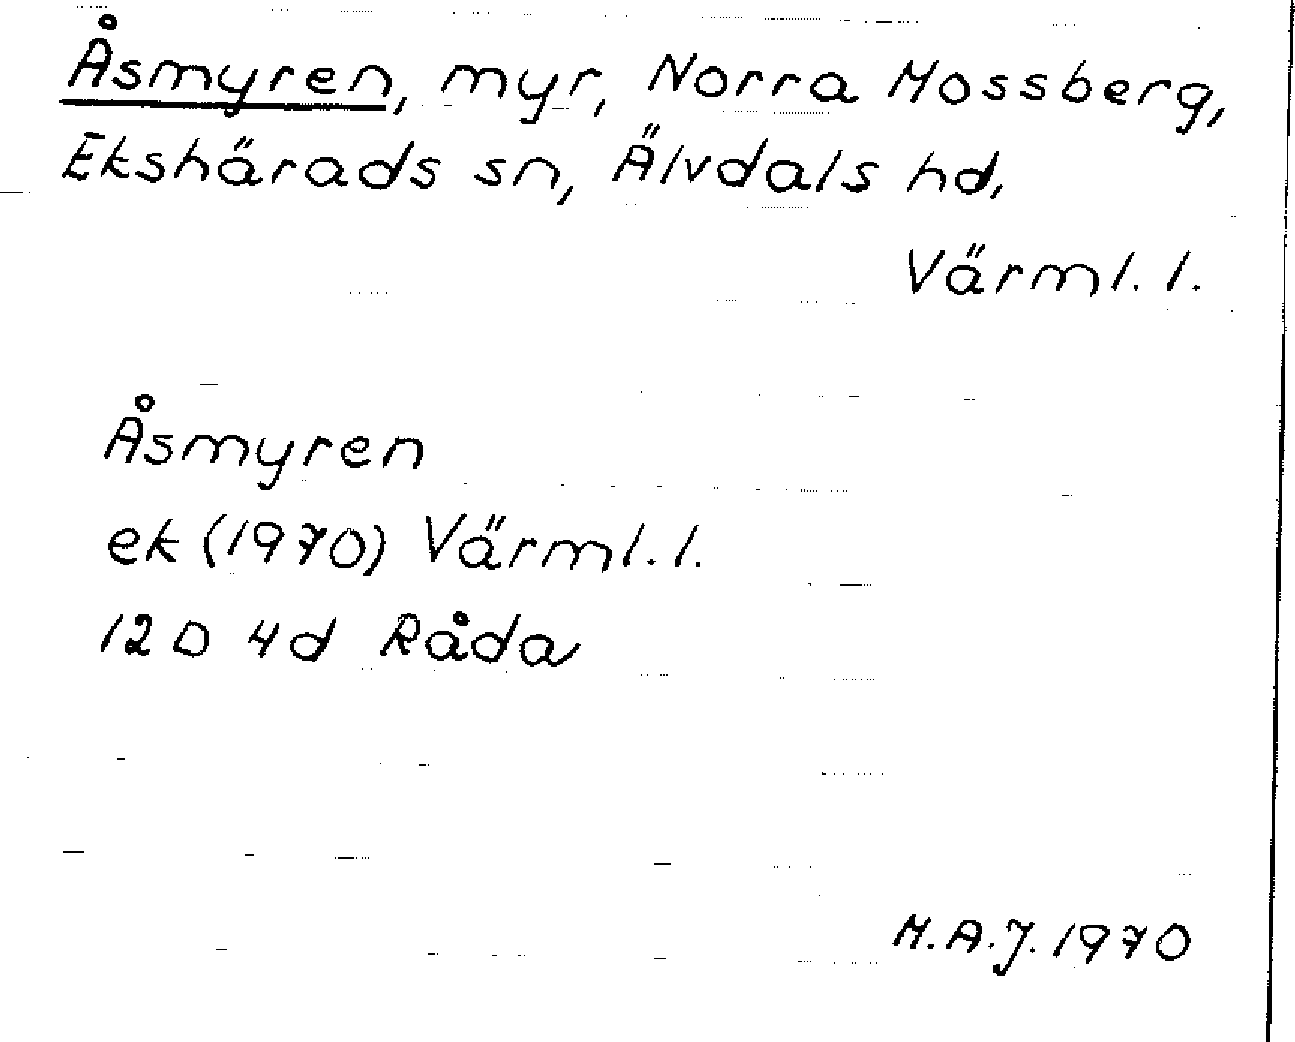 Åsmyren, myr, Norra Mossberg,
Ekshärads sn, Älvdals hd,
Värml. l.
Åsmyren
ek (1970) Värml. l.
12 D 4d Råda
M.A.J. 1970